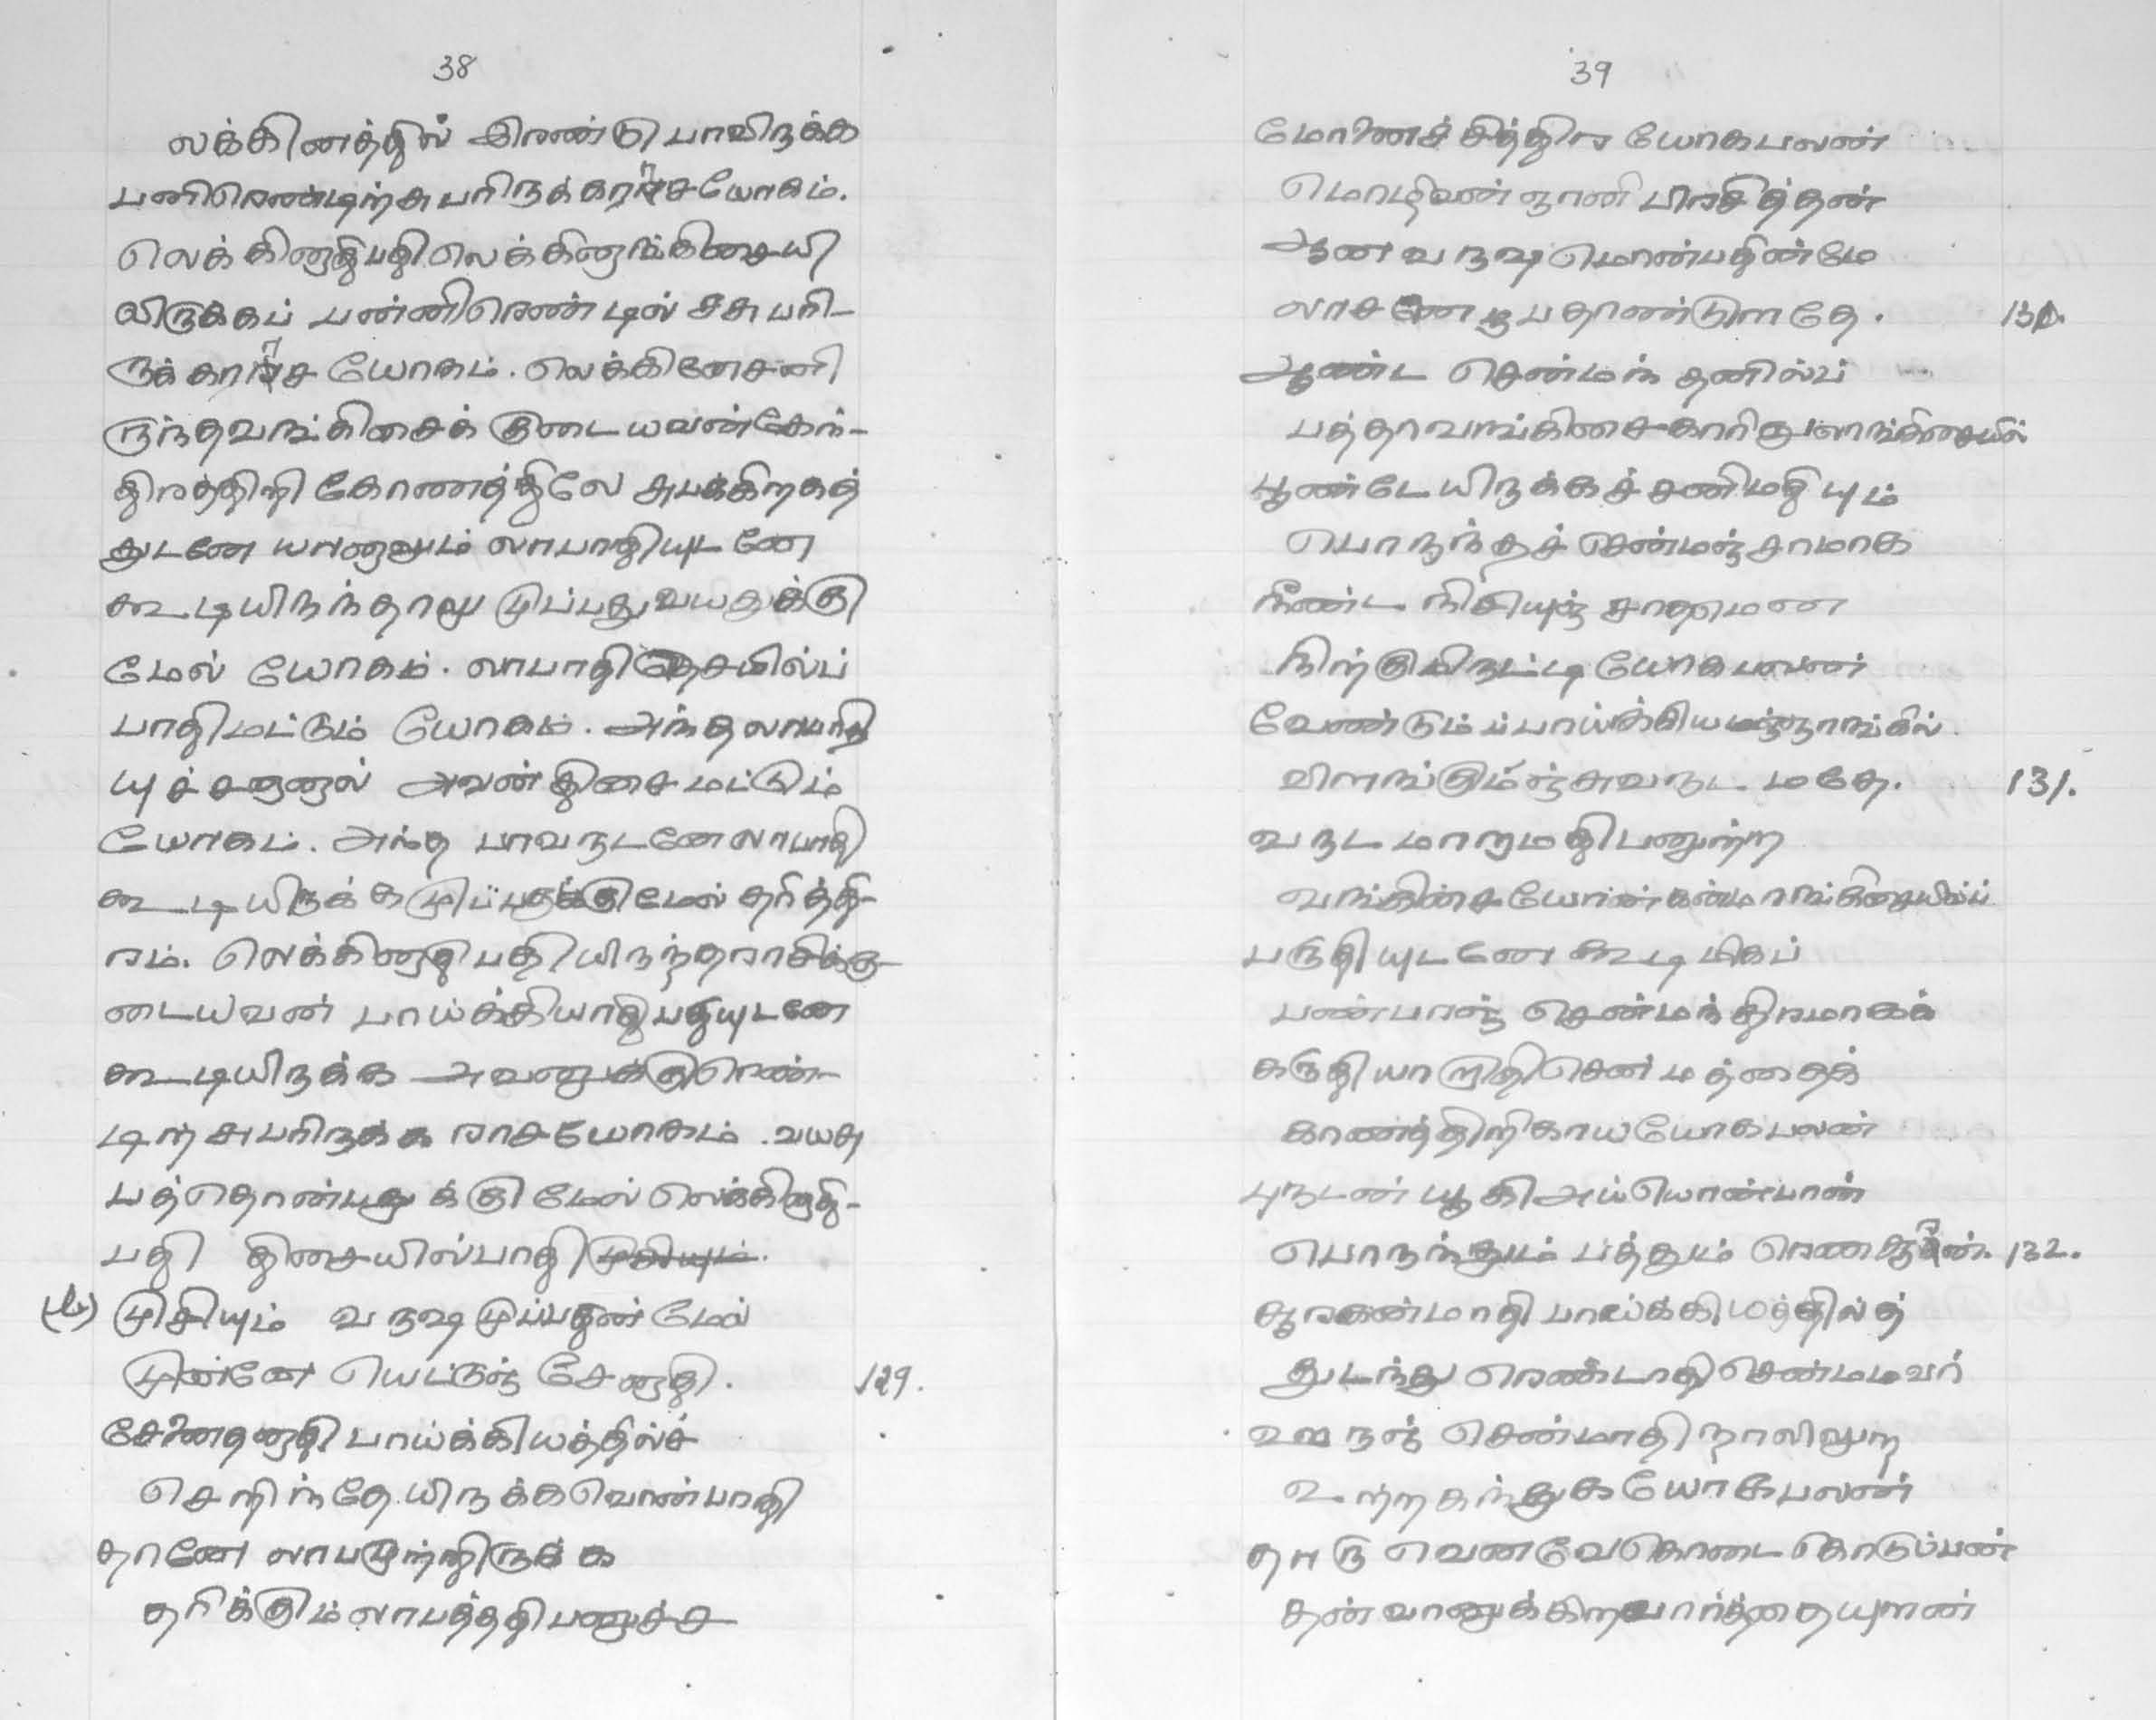 38
லக்கினத்தில் இரண்டு பாவிருக்க
பனிரெண்டிற்சு பரிருக்கராசயோகம்.
லெக்கினாதிபதி லெக்கினாங்கிசையி
லிருக்கப் பன்னிரெண்டில் ச்சுபரி-
ருக்கராச யோகம். லெக்கினேசனி
ருந்தவங்கிசைக் குடையவன்கேந்-
திரத்திரி கோணத்திலே சுபக்கிறகத்
துடனே யானாலும் லாபாதியுடனே
கூடியிருந்தாலு முப்பதுவயதுக்கு
மேல் யோகம். லாபாதி தெசமில்ப்
பாதிமட்டும் யோகம். அந்தலாபாதி
யுச்சனானால் அவன்திசைமட்டும்
யோகம். அந்த பாவருடனேலாபாதி
கூடியிருக்க முப்பதுக்குமேல் தரித்தி-
ரம். லெக்கினாதிபதியிருந்தராசிக்கு
டையவன் பாய்க்கியாதிபதியுடனே
கூடியிருக்க அவனுக்குரெண்-
டிற்சுபரிருக்க ராசயோகம். வயசு
பத்தொண்பதுக்குமேல் லெக்கினாதி-
பதி திசையில்பாதி முசியும்.
(பு) முசியும் வருஷ முப்பதின்மேல்
முன்னே யெட்டுஞ் சேனாதி. 129.
சேனைதனாதி பாய்க்கியத்தில்ச்
செறிந்தே யிருக்கவொண்பாதி
தானே லாபமுற்றிருக்க
தரிக்கும்லாபத்ததிபனுச்ச
39
மோணைச் சித்திர யோகபலண்
மொழிவண் ஞானி பிரசித்தண்
ஆண வருஷமொண்பதின்மே
லாசனே ருபதாண்டுளதே. 130.
ஆண்ட செண்மந் தனில்ப்
பத்தாவாங்கிசைகாரிருபாங்கிசையில்
பூண்டே யிருக்கச் சணிமதியும்
பொருந்தச் செண்மஞ்சாமாக
நீண்ட நிசியுஞ் சாதுமென
நிற்குமிருட்டி யோகபலண்
வேண்டும்ப்பாய்க்கியமஞ்நாங்கில்
விளங்கும்ஞ்சுவருட மதே. 131.
வருட மாறுமதிபனுற்ற
வங்கிசையோண்கண்மாங்கிசையில்ப்
பருதியுடனே கூடிமிகப்
பண்பாஞ் செண்மந்திரமாகக்
கருதியாறாதிசெண்மத்தைக்
காணத்திரிகாயயோகபலண்
புருடண் யூகிஅய்யொண்பாண்
பொருந்தும் பத்தும் ரெணசூரண். 132.
சூரகண்மாதி பாய்க்கியத்தில்த்
துடர்ந்து ரெண்டாதிசெண்மமவர்
ஊருஞ் செண்மாதி நாலிலுற
உற்றகந்துகயோகபலண்
தாரு வெனவேகொடை கொடுப்பண்
தன்வாளுக்கிறவார்த்தையுளண்